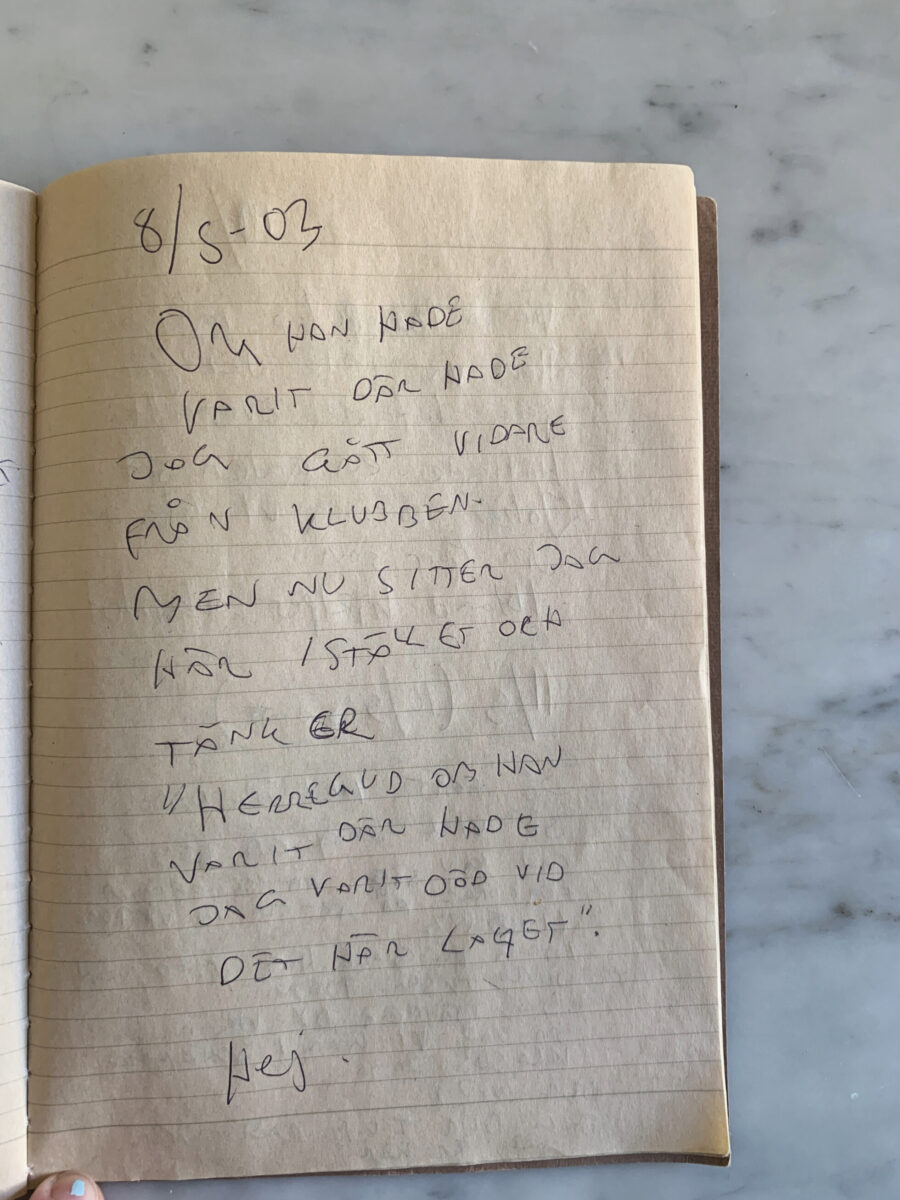 8/5-03
OM HAN HADE
VARIT DÄR HADE
JAG GÅTT VIDARE
FRÅN KLUBBEN.
MEN NU SITTER JAG
HÄR ISTÄLLET OCH
TÄNKER
"HERREGUD OM HAN
VARIT DÄR HADE
JAG VARIT DÖD VID
DET HÄR LAGET".
Hej.